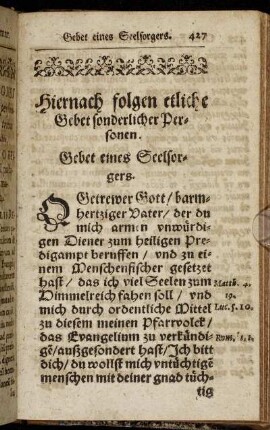 Gebet eines Seelsorgers. 427
Hiernach folgen etliche
Gebet sonderlicher Per-
sonen.
Gebet eines Seelsor-
gers.
O Getrewer Gott / barm-
hertziger Vater / der du
mich armen unwürdi-
gen Diener zum heiligen Pre-
digampt beruffen / vnd zu ei-
nem Menschenfischer gesetzet
hast / das ich viel Seelen zum Matth. 4.
Himmelreich fahen soll / vnd 19.
mich durch ordentliche Mittel Luc. 5. 10.
zu diesem meinen Pfarrvolck /
das Evangelium zu verkündi- Rom. 1. 1.
gē / außgesondert hast / Ich bitt
dich / du wollst mich vntüchtigē
menschen mit deiner gnad tüch-
tig